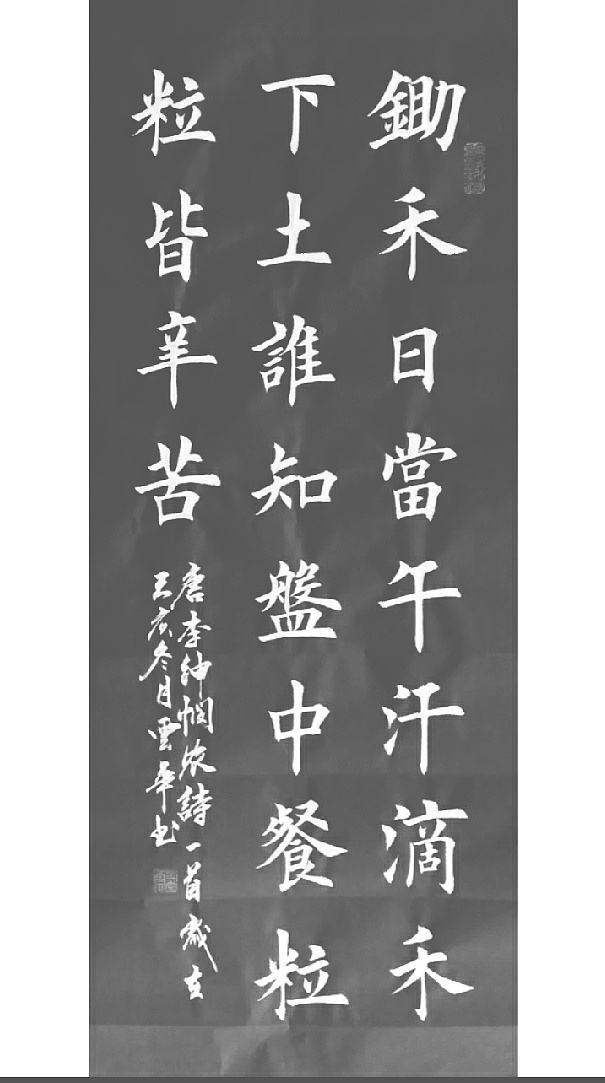 鋤禾日當午汗滴禾
下土誰知盤中餐粒
粒皆辛苦
唐李紳憫农詩一首歲在
亥冬月雲華书